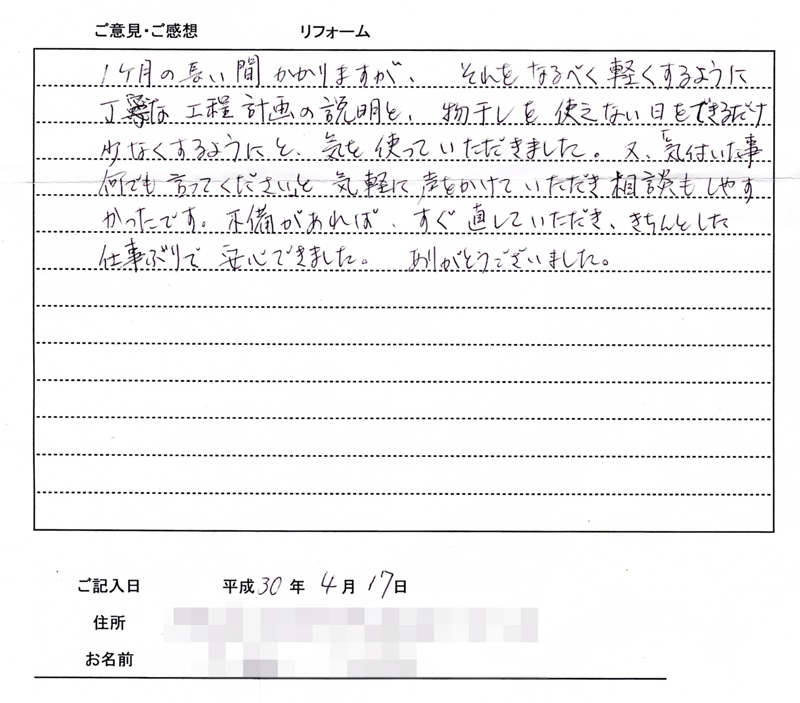 ご意見・ご感想　リフォーム
1ヶ月の長い間かかりますが、それをなるべく軽くするように
丁寧な工程計画の説明と、物干しを使えない日をできるだけ
少なくするようにと、気を使っていただきました。又、気付いた事
何でも言ってくださいと気軽に声をかけていただき相談もしやす
かったです。不備があれば、すぐ直していただき、きちんとした
仕事ぶりで安心できました。ありがとうございました。
ご記入日　平成30年4月17日
住所
お名前